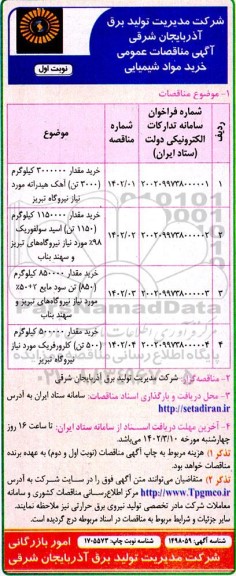 شرکت مدیریت تولید برق
آذربایجان شرقی
آگهی مناقصات عمومی
خرید مواد شیمیایی
نوبت اول
۱- موضوع مناقصات
ردیف
شماره فراخوان
سامانه تدارکات
الکترونیکی دولت
(ستاد ایران)
شماره
مناقصه
موضوع
۱
۲۰۰۲۰۹۹۷۳۸۰۰۰۰۰۱
۱۴۰۲/۰۱
خرید مقدار ۳۰۰۰۰۰۰ کیلوگرم
(۳۰۰۰ تن) آهک هیدراته مورد
نیاز نیروگاه تبریز
۲
۲۰۰۲۰۹۹۷۳۸۰۰۰۰۰۲
۱۴۰۲/۰۲
خرید مقدار ۱۱۵۰۰۰۰ کیلوگرم
(۱۱۵۰ تن) اسید سولفوریک
۹۸٪ مورد نیاز نیروگاه‌های تبریز
و سهند بناب
۳
۲۰۰۲۰۹۹۷۳۸۰۰۰۰۰۳
۱۴۰۲/۰۳
خرید مقدار ۸۵۰۰۰۰ کیلوگرم
(۸۵۰ تن) سود مایع ۲±۵۰٪
مورد نیاز نیروگاه‌های تبریز و
سهند بناب
۴
۲۰۰۲۰۹۹۷۳۸۰۰۰۰۰۴
۱۴۰۲/۰۴
خرید مقدار ۵۰۰۰۰۰ کیلوگرم
(۵۰۰ تن) کلروفریک مورد نیاز
نیروگاه تبریز
۲- مناقصه‌گزار: شرکت مدیریت تولید برق آذربایجان شرقی
۳- محل دریافت و بارگذاری اسناد مناقصات: سامانه ستاد ایران به آدرس
http://setadiran.ir
۴- آخرین مهلت دریافت اسناد از سامانه ستاد ایران: تا ساعت ۱۶ روز
چهارشنبه مورخه ۱۴۰۲/۳/۱۰ می‌باشد.
تذکر ۱) هزینه مربوط به چاپ آگهی مناقصات (نوبت اول و دوم) به عهده برنده
مناقصات خواهد بود.
تذکر ۲) متقاضیان می‌توانند متن آگهی فوق را در سایت شرکت به آدرس
http://www.Tpgmco.ir مرکز اطلاع‌رسانی مناقصات کشوری و سامانه
معاملات شرکت مادر تخصصی تولید نیروی برق حرارتی نیز ملاحظه نمایند.
سایر جزئیات و شرایط مربوط به مناقصات در اسناد مربوطه درج گردیده است.
شناسه آگهی: ۱۴۹۸۰۵۹
شناسه نوبت چاپ: ۱۷۰۵۵۷۳
امور بازرگانی
شرکت مدیریت تولید برق آذربایجان شرقی